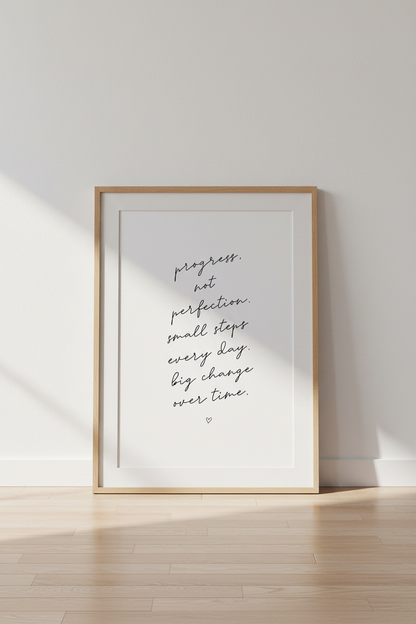 progress,
not
perfection.
small steps
every day.
big change
over time.
♡